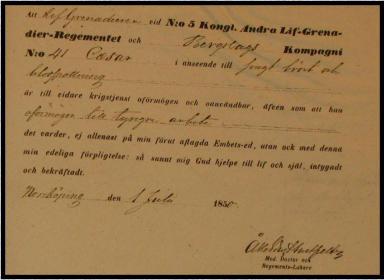 Att Lif Grenadieren vid N:o 5 Kongl. Andra Lif-Grena-
dier-Regementet och Bergslags Kompagni
N:o 41 Casar i anseende till svagt bröst och
blodspottning
är till vidare krigstjenst oförmögen och oanvändbar, äfven som att han
oförmögen till tyngre arbete
det varder, ej allenast på min förut aflagda Embets-ed, utan ock med denna
min edeliga förpligtelse: så sannt mig Gud hjelpe till lif och själ, intygadt
och bekräftadt.
Norrköping den 1 Juli 1850
Med. Doctor och
Regements-Läkare